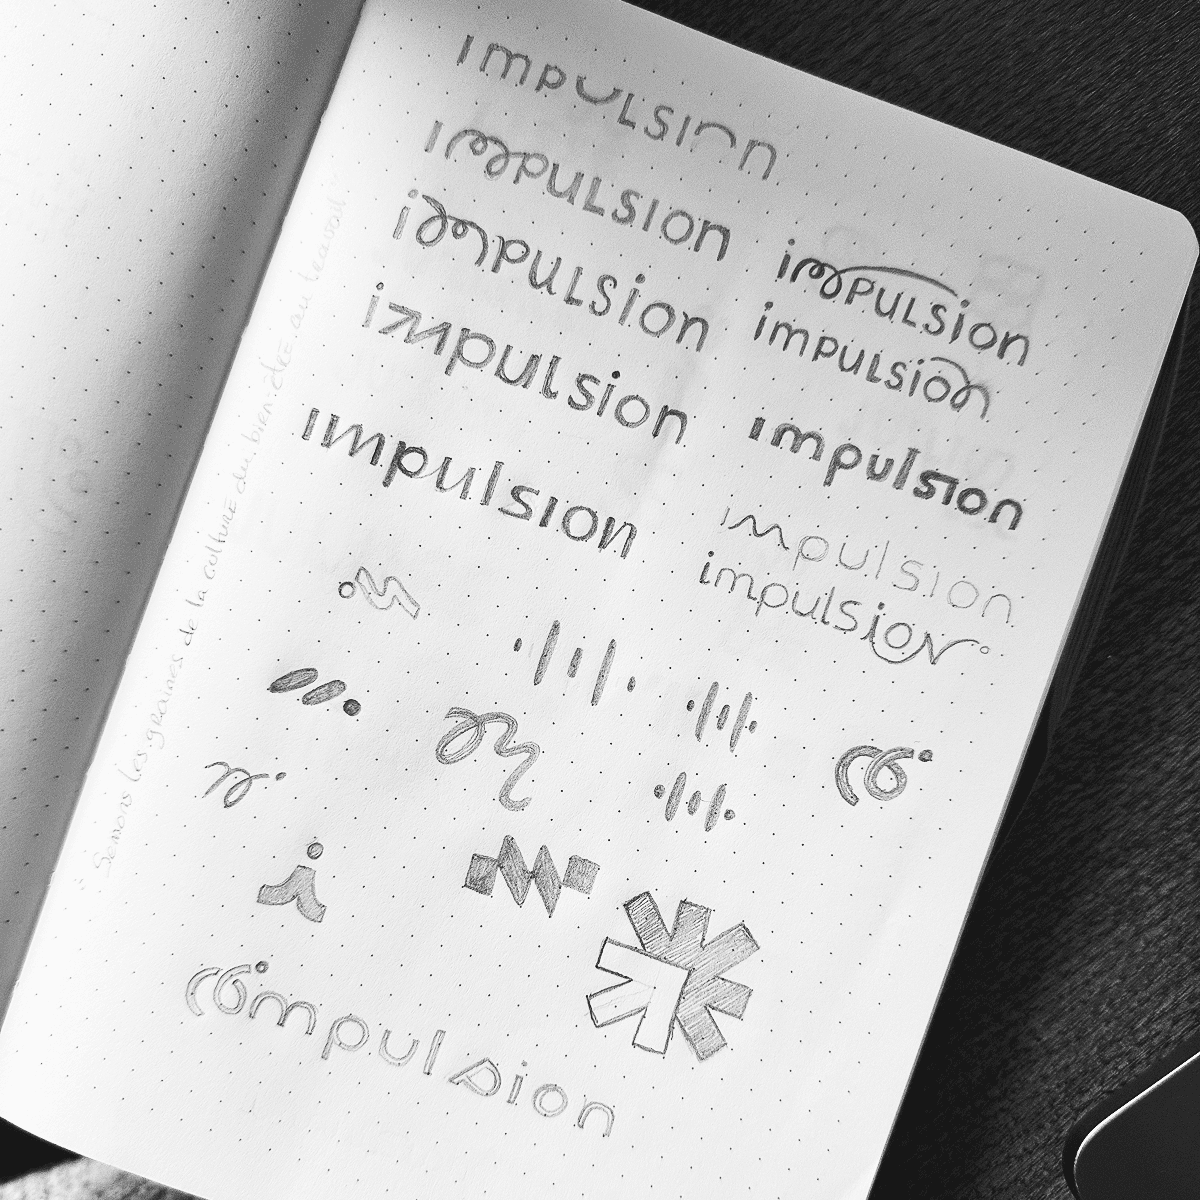 impulsion
impulsion
impulsion
impulsion
impulsion
impulsion
impulsion
impulsion
impulsion
impulsion
impulsion
"Semons les graines de la culture du bien-être au travail"